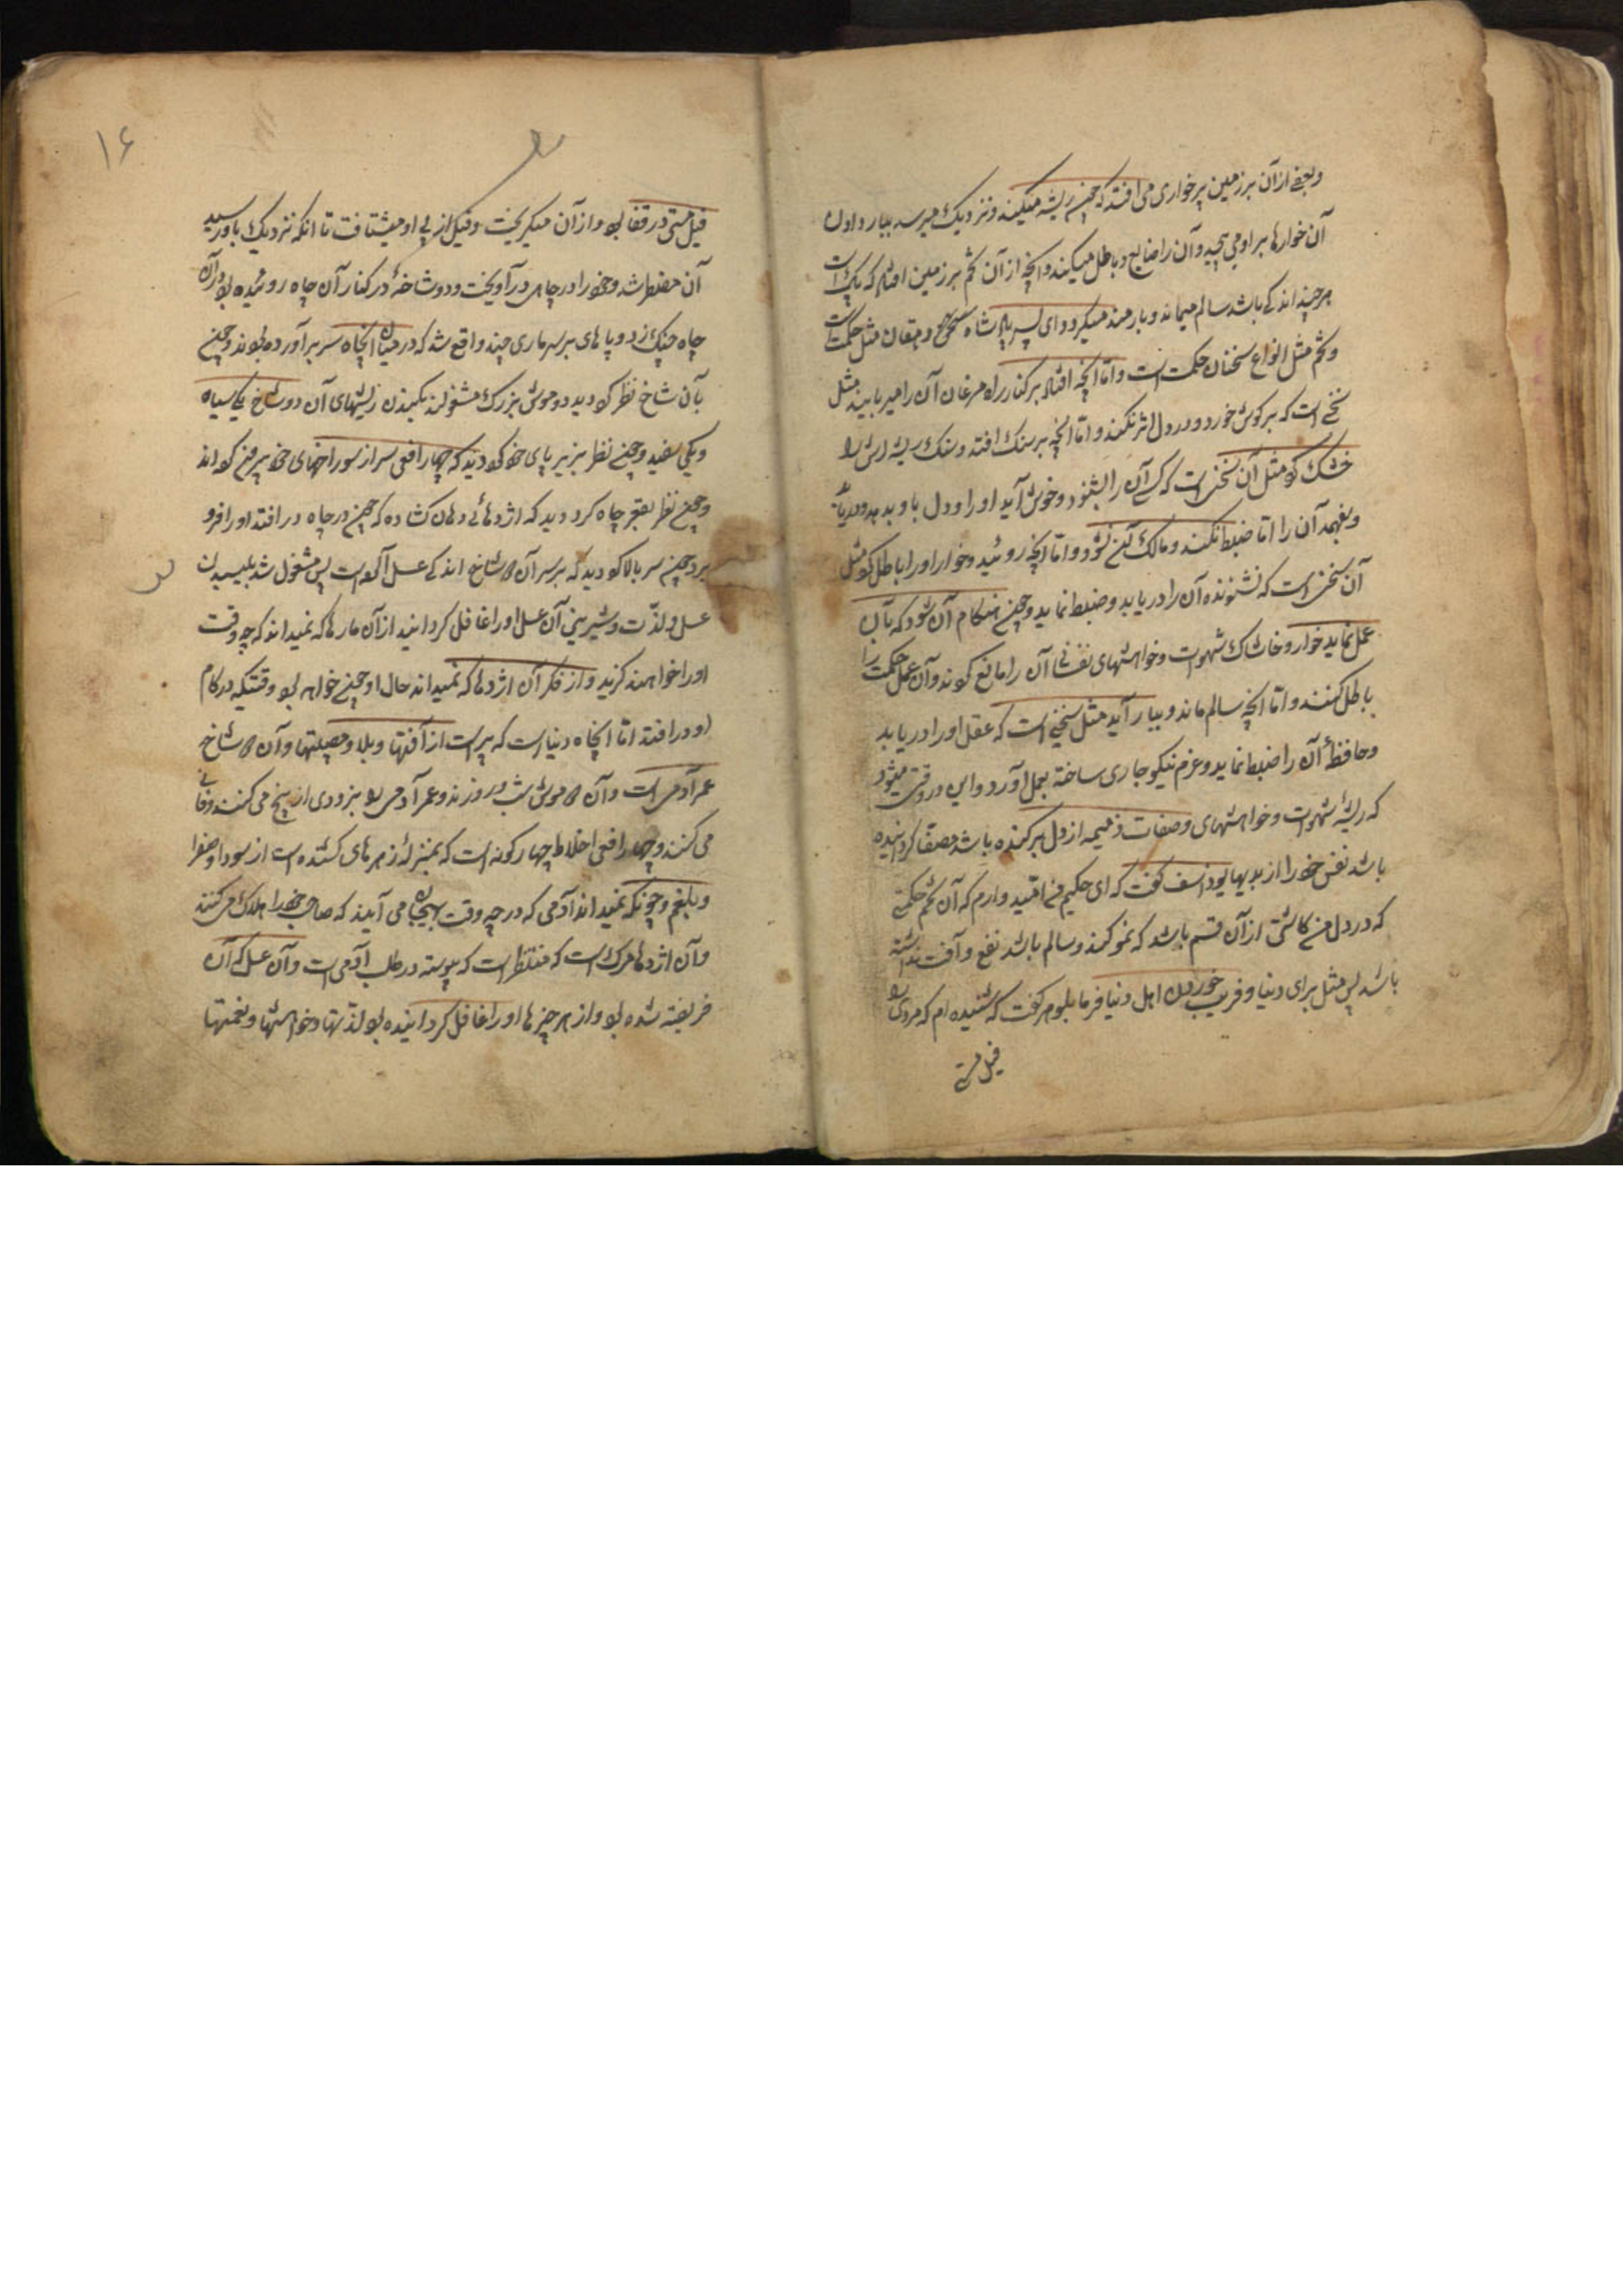 وبعضی از آن بر زمین پرخواری می افتد که چون ریشه میکند و نزدیک میرسد ببار دادن
آن خوارها بر او می پیچد و آن را ضایع و باطل میکنند و انچه از آن تخم بر زمین افتد که پاک است
هر چند اندکی باشد سالم میماند و بارمند میگردد ای پسر پادشاه دهقان مثل حکمت است
و تخم مثل انواع سخنان حکمت است و اما انچه افتد بر کنار راه مرغان آن را میربایند مثل
سخنی است که بر گوش خورد و در دل اثر نکند و اما انچه بر سنک افتد و سنک ریشه اش را
خشک کند مثل آن سخنی است که کسی آن را بشنود و خوش آید او را و دل باو بدهد و دریابد
و بفهمد آن را اما ضبط نکند و مالک آن نشود و اما انچه روئید و خوار او را باطل کرد مثل
آن سخنی است که شنونده آن را دریابد و ضبط نماید و چون هنکام آن شود که بآن
عمل نماید خوار و خاشاک شهوات و خواهشهای نفسانی آن را مانع کردند و آن عمل حکمت را
باطل کنند و اما انچه سالم ماند و ببار آید مثل سخنی است که عقل او را دریابد
و حافظهٔ آن را ضبط نماید و عزم نیکو جاری ساخته بعمل آورد و این در وقتی میشود
که ریشهٔ شهوات و خواهشهای و صفات ذمیمه از دل بر کنده باشد مصفا کردانیده
باشد نفس خود را از بدیها یوذاسف کفت که ای حکیم من امید دارم که آن تخم حکمتی
که در دل من کاشتی از آن قسم باشد که نمو کند و سالم باشد نفع و آفت نداشته
باشد پس مثل برای دنیا و فریب خوردن اهل دنیا فرما بلوهر کفت که شنیده ام که مردی را
فیل مستی
۱۶
فیل مستی در قفا بود و از آن میکریخت و فیل از پی او میشتافت تا انکه نزدیک باو رسید
آن مضطر شد و خود را در چاهی در آویخت و دو شاخهٔ در کنار آن چاه روئیده بود در آن
چاه چنک زد و پاهای بر سر ماری چند واقع شد که در میان انچاه سر بر آورده بودند و چون
بآن شاخ نظر کرد دید دو موش بزرک مشغولند بکندن ریشهای آن دو شاخ یکی سیاه
و یکی سفید و چون نظر بزیر پای خود کرد دید که چهار افعی سر از سوراخهای خود بیرون کرده اند
و چون نظر بقعر چاه کرد دید که اژدهائی دهان کشاده که چون در چاه در افتد او را فرو
برد چون سر بالا کرد دید که بر سر آن دو شاخ اندکی عسل آلوده است پس مشغول شد بلیسیدن
عسل و لذت و شیرینی آن عسل او را غافل کردانید از آن مارها که نمیداند که چه وقت
او را خواهند کزید و از فکر آن اژدها که نمیداند حال او چون خواهد بود وقتیکه در کام
او در افتد اما انچاه دنیا است که پر است از آفتها و بلا و مصیبتها و آن دو شاخ
عمر آدمی است و آن دو موش شب و روزند و عمر آدمی را بزودی از بیخ می کنند و فانی
می کنند و چهار افعی اخلاط چهار کونه است که بمنزلهٔ زهرهای کشنده است از سودا و صفرا
و بلغم و چونکه نمیداند آدمی که در چه وقت بهیجان می آیند که صاحب خود را هلاک می کنند
و آن اژدها مرک است که منتظر است که پیوسته در طلب آدمی است و آن عسل که آن
فریفته شده بود و از هر چیزها او را غافل کردانیده بود لذتها و خواهشها و نعمتها